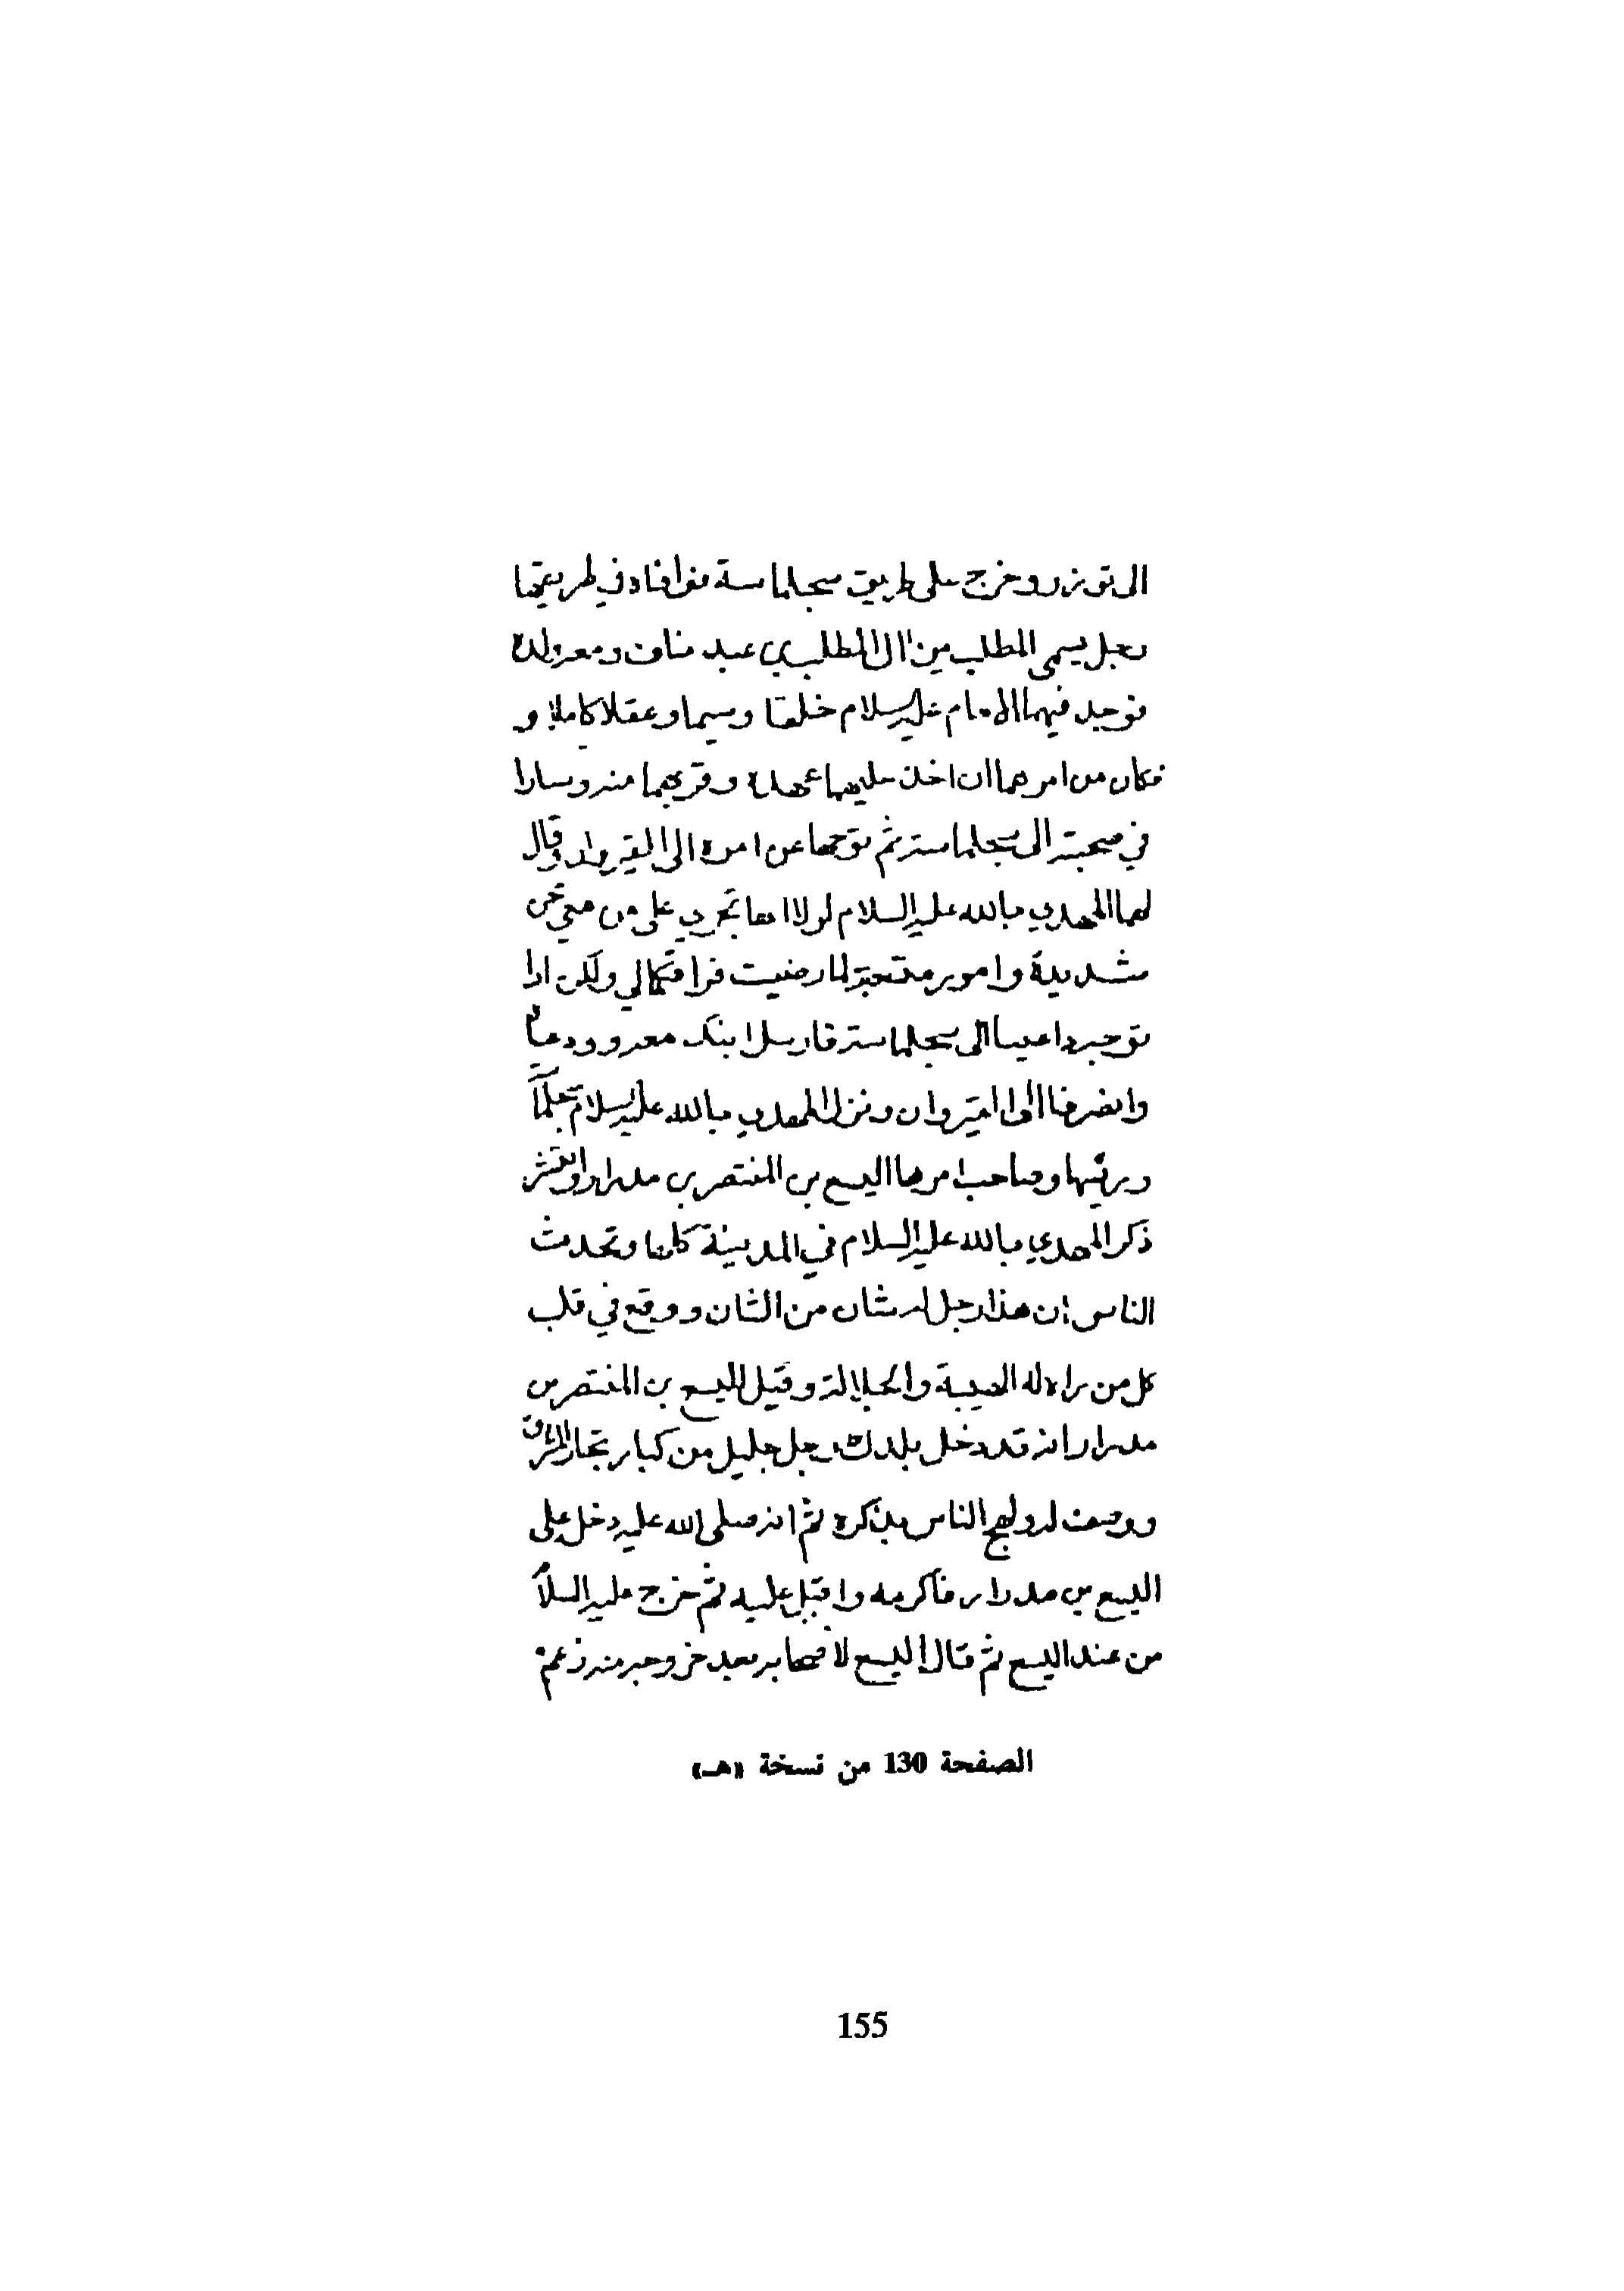 الى توزر وخرج على طريق سجلماسة فوافاه في طريقها
رجل يسمى المطلب من ال المطلب بن عبد مناف ومعه ولده
فوجد فيهما الامام عليه السلام خلقا وسيما وعقلا كاملا و
فكان من امرهما ان اخذ عليهما عهده وقربهما منه وسارا
في صحبته الى سجلماسة ثم توجها عن امره الى القيروان وقال
لهما المهدي بالله عليه السلام لولا انها تجري علي من محن
شديدة وامور صعبة لما رضيت فراقكما لي ولكن اذا
توجه داعينا الى سجلماسة فارسل ابنك معه وودعاه
وانصرفا الى القيروان ونزل المهدي بالله عليه السلام سجلماسة
ورئيسها وصاحب امرها اليسع بن المنتصر بن مدرار وانتشر
ذكر المهدي بالله عليه السلام في المدينة كلها وتحدث
الناس ان هذا رجل له شان من الشان ووقع في قلب
كل من راه له الهيبة والجلالة وقيل لليسع بن المنتصر بن
مدرار انه قد دخل بلدك رجل جليل من كبار تجار المشرق
ووصف له ولهج الناس بذكره ثم انه صلى الله عليه دخل على
اليسع بن مدرار فأكرمه واقبل عليه ثم خرج عليه السلام
من عند اليسع ثم قال اليسع لاصحابه بعد خروجه منه زعمتم
الصفحة 130 من نسخة «هـ»
155